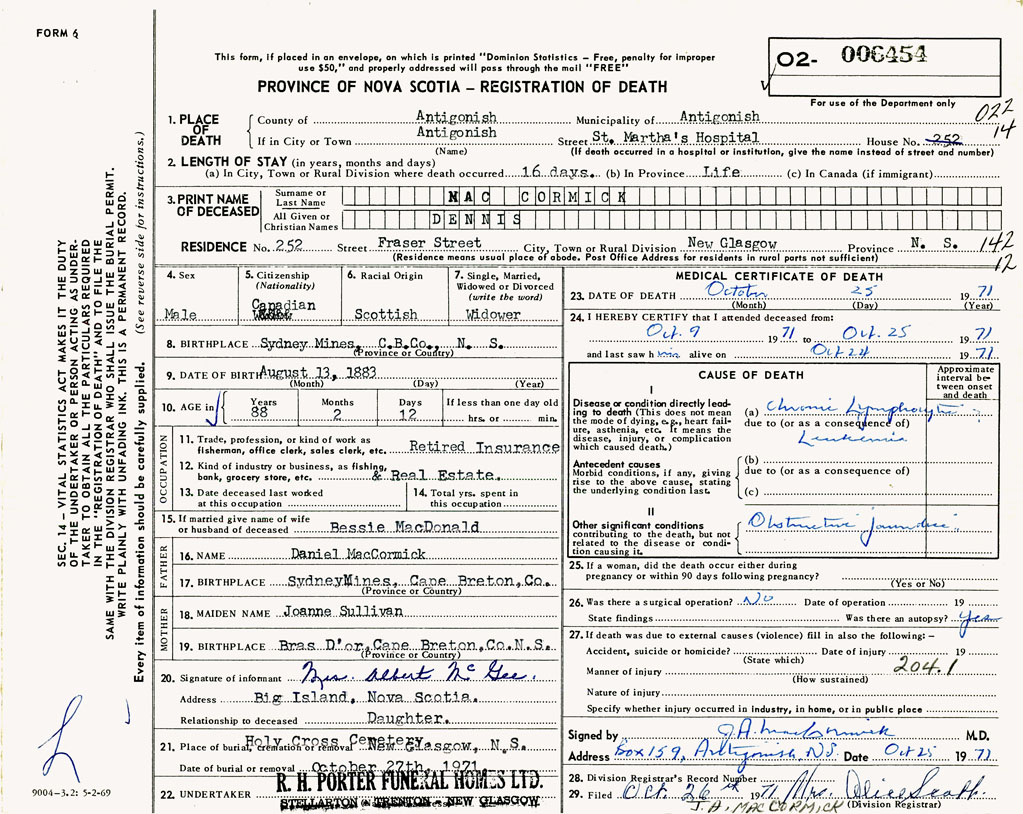 FORM 6
This form, if placed in an envelope, on which is printed "Dominion Statistics – Free, penalty for improper
use $50," and properly addressed will pass through the mail "FREE"
PROVINCE OF NOVA SCOTIA – REGISTRATION OF DEATH
O2- 006454
For use of the Department only
022
14
1. PLACE OF DEATH
County of Antigonish Municipality of Antigonish
If in City or Town Antigonish Street St. Martha's Hospital House No. 252
(Name) (If death occurred in a hospital or institution, give the name instead of street and number)
2. LENGTH OF STAY (in years, months and days)
(a) In City, Town or Rural Division where death occurred 16 days. (b) In Province Life (c) In Canada (if immigrant)
3. PRINT NAME OF DECEASED
Surname or Last Name MAC CORMICK
All Given or Christian Names DENNIS
RESIDENCE No. 252 Street Fraser Street City, Town or Rural Division New Glasgow Province N. S.
(Residence means usual place of abode. Post Office Address for residents in rural parts not sufficient)
142
12
4. Sex
Male
5. Citizenship
(Nationality)
Canadian
6. Racial Origin
Scottish
7. Single, Married,
Widowed or Divorced
(write the word)
Widower
8. BIRTHPLACE Sydney Mines, C.B.Co., N. S.
(Province or Country)
9. DATE OF BIRTH August 13, 1883
(Month) (Day) (Year)
10. AGE in
Years Months Days If less than one day old
88 2 12 hrs. or min.
OCCUPATION
11. Trade, profession, or kind of work as
fisherman, office clerk, sales clerk, etc. Retired Insurance
12. Kind of industry or business, as fishing,
bank, grocery store, etc. & Real Estate.
13. Date deceased last worked
at this occupation
14. Total yrs. spent in
this occupation
15. If married give name of wife
or husband of deceased Bessie MacDonald
FATHER
16. NAME Daniel MacCormick
17. BIRTHPLACE SydneyMines, Cape Breton,Co.
(Province or Country)
MOTHER
18. MAIDEN NAME Joanne Sullivan
19. BIRTHPLACE Bras D'or,Cape Breton,Co.N.S.
(Province or Country)
20. Signature of informant Mrs. Albert McGee.
Address Big Island, Nova Scotia.
Relationship to deceased Daughter.
21. Place of burial, cremation or removal Holy Cross Cemetery New Glasgow, N.S.
Date of burial or removal October 27th, 1971
22. UNDERTAKER R. H. PORTER FUNERAL HOMES LTD.
STELLARTON - TRENTON - NEW GLASGOW
MEDICAL CERTIFICATE OF DEATH
23. DATE OF DEATH October 25 1971
(Month) (Day) (Year)
24. I HEREBY CERTIFY that I attended deceased from:
Oct. 9 1971 to Oct. 25 1971
and last saw him alive on Oct 24 1971
CAUSE OF DEATH
Approximate
interval be-
tween onset
and death
I
Disease or condition directly lead-
ing to death (This does not mean
the mode of dying, e.g., heart fail-
ure, asthenia, etc. It means the
disease, injury, or complication
which caused death.)
(a) Chronic Lymphocytic
due to (or as a consequence of)
Leukemia
Antecedent causes
Morbid conditions, if any, giving
rise to the above cause, stating
the underlying condition last.
(b)
due to (or as a consequence of)
(c)
II
Other significant conditions
contributing to the death, but not
related to the disease or condi-
tion causing it.
Obstructive jaundice
25. If a woman, did the death occur either during
pregnancy or within 90 days following pregnancy?
(Yes or No)
26. Was there a surgical operation? No Date of operation 19
State findings Was there an autopsy? yes
27. If death was due to external causes (violence) fill in also the following: –
Accident, suicide or homicide? Date of injury 19
(State which)
Manner of injury 204.1
(How sustained)
Nature of injury
Specify whether injury occurred in industry, in home, or in public place
Signed by J.A. MacCormick M.D.
Address Box 159, Antigonish, N.S. Date Oct 25 1971
28. Division Registrar's Record Number
29. Filed Oct. 26th 1971 Mrs. Alice Scott.
(Division Registrar)
J. A. MACCORMICK
SEC. 14 – VITAL STATISTICS ACT MAKES IT THE DUTY
OF THE UNDERTAKER OR PERSON ACTING AS UNDER-
TAKER TO OBTAIN ALL THE PARTICULARS REQUIRED
IN THE "REGISTRATION OF DEATH" AND TO FILE THE
SAME WITH THE DIVISION REGISTRAR WHO SHALL ISSUE THE BURIAL PERMIT.
WRITE PLAINLY WITH UNFADING INK. THIS IS A PERMANENT RECORD.
Every item of information should be carefully supplied. (See reverse side for instructions.)
9004-3.2: 5-2-69